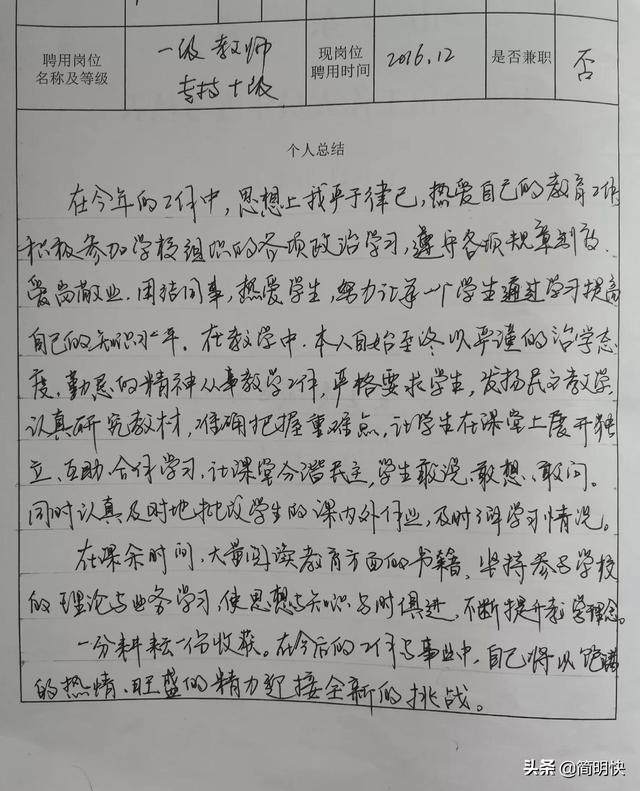 聘用岗位
名称及等级
一级教师
专技十级
现岗位
聘用时间
2016.12
是否兼职
否
个人总结
在今年的工作中，思想上我严于律己，热爱自己的教育工作
积极参加学校组织的各项政治学习，遵守各项规章制度、
爱岗敬业、团结同事，热爱学生，努力让每一个学生通过学习提高
自己的知识水平。在教学中，本人自始至终以严谨的治学态
度、勤恳的精神从事教学工作，严格要求学生，发扬民主教学，
认真研究教材，准确把握重难点，让学生在课堂上展开独
立、互助、合作学习，让课堂分谐民主，学生敢说、敢想、敢问。
同时认真及时地批改学生的课内外作业，及时了解学习情况。
在课余时间，大量阅读教育方面的书籍，坚持参予学校
的理论与业务学习，使思想与知识与时俱进，不断提升教学理念。
一分耕耘一份收获。在今后的工作与事业中，自己将以饱满
的热情、旺盛的精力迎接全新的挑战。
头条 @简明快